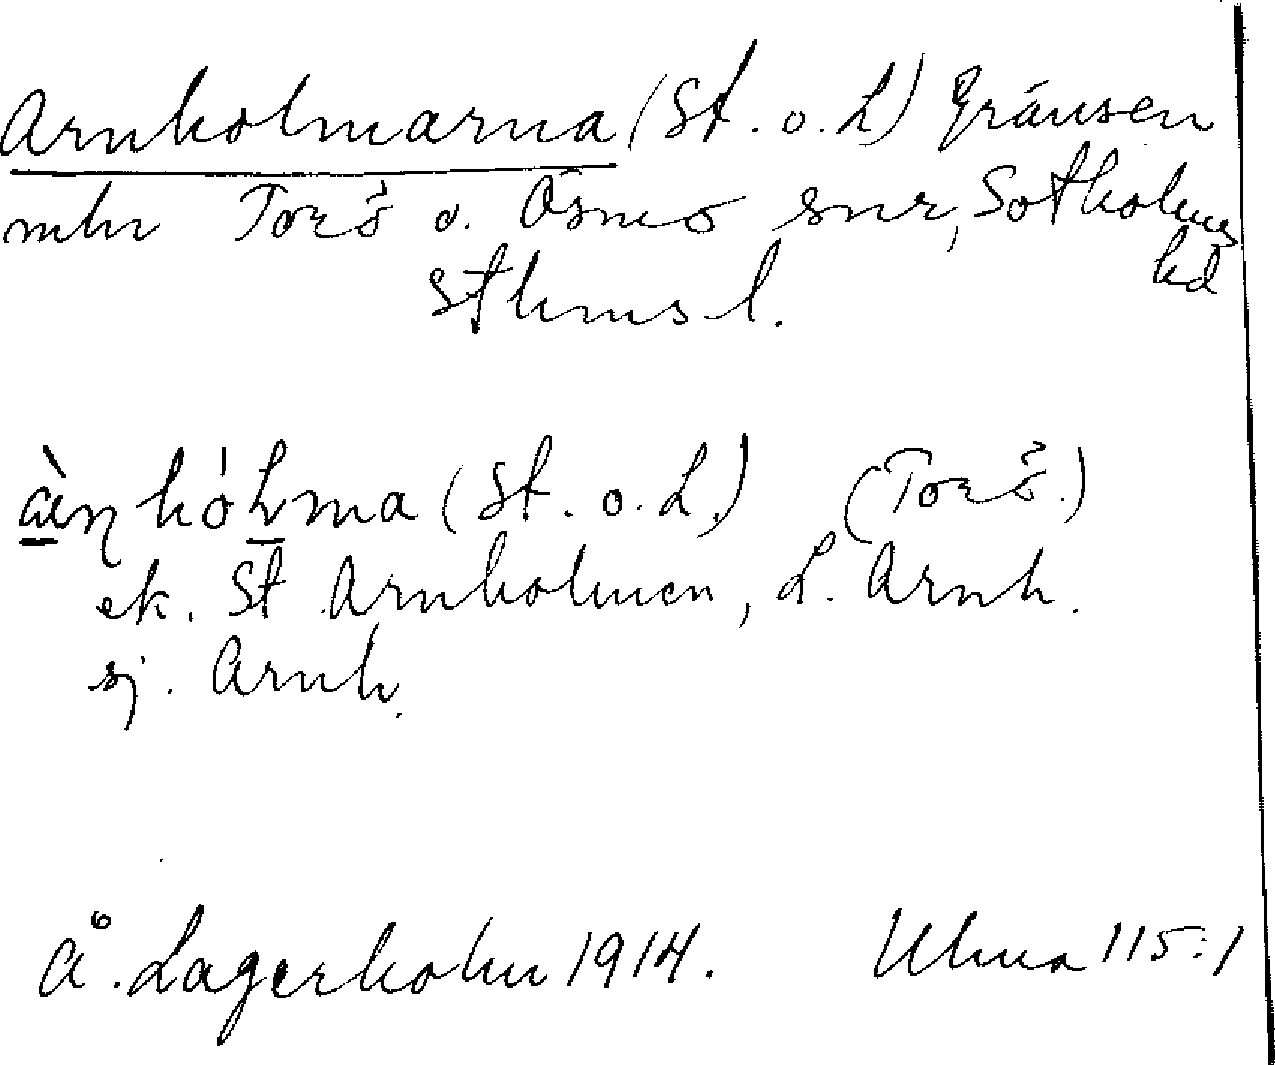 Arnholmarna (St. o. L) Gränsen
mln Torö o. Ösmo snr, Sotholms
hd
Sthms l.
(St. o. L.) (Torö.)
ek. St Arnholmen, L. Arnh.
sj. Arnh.
Å. Lagerholm 1914. Ulma 115:1